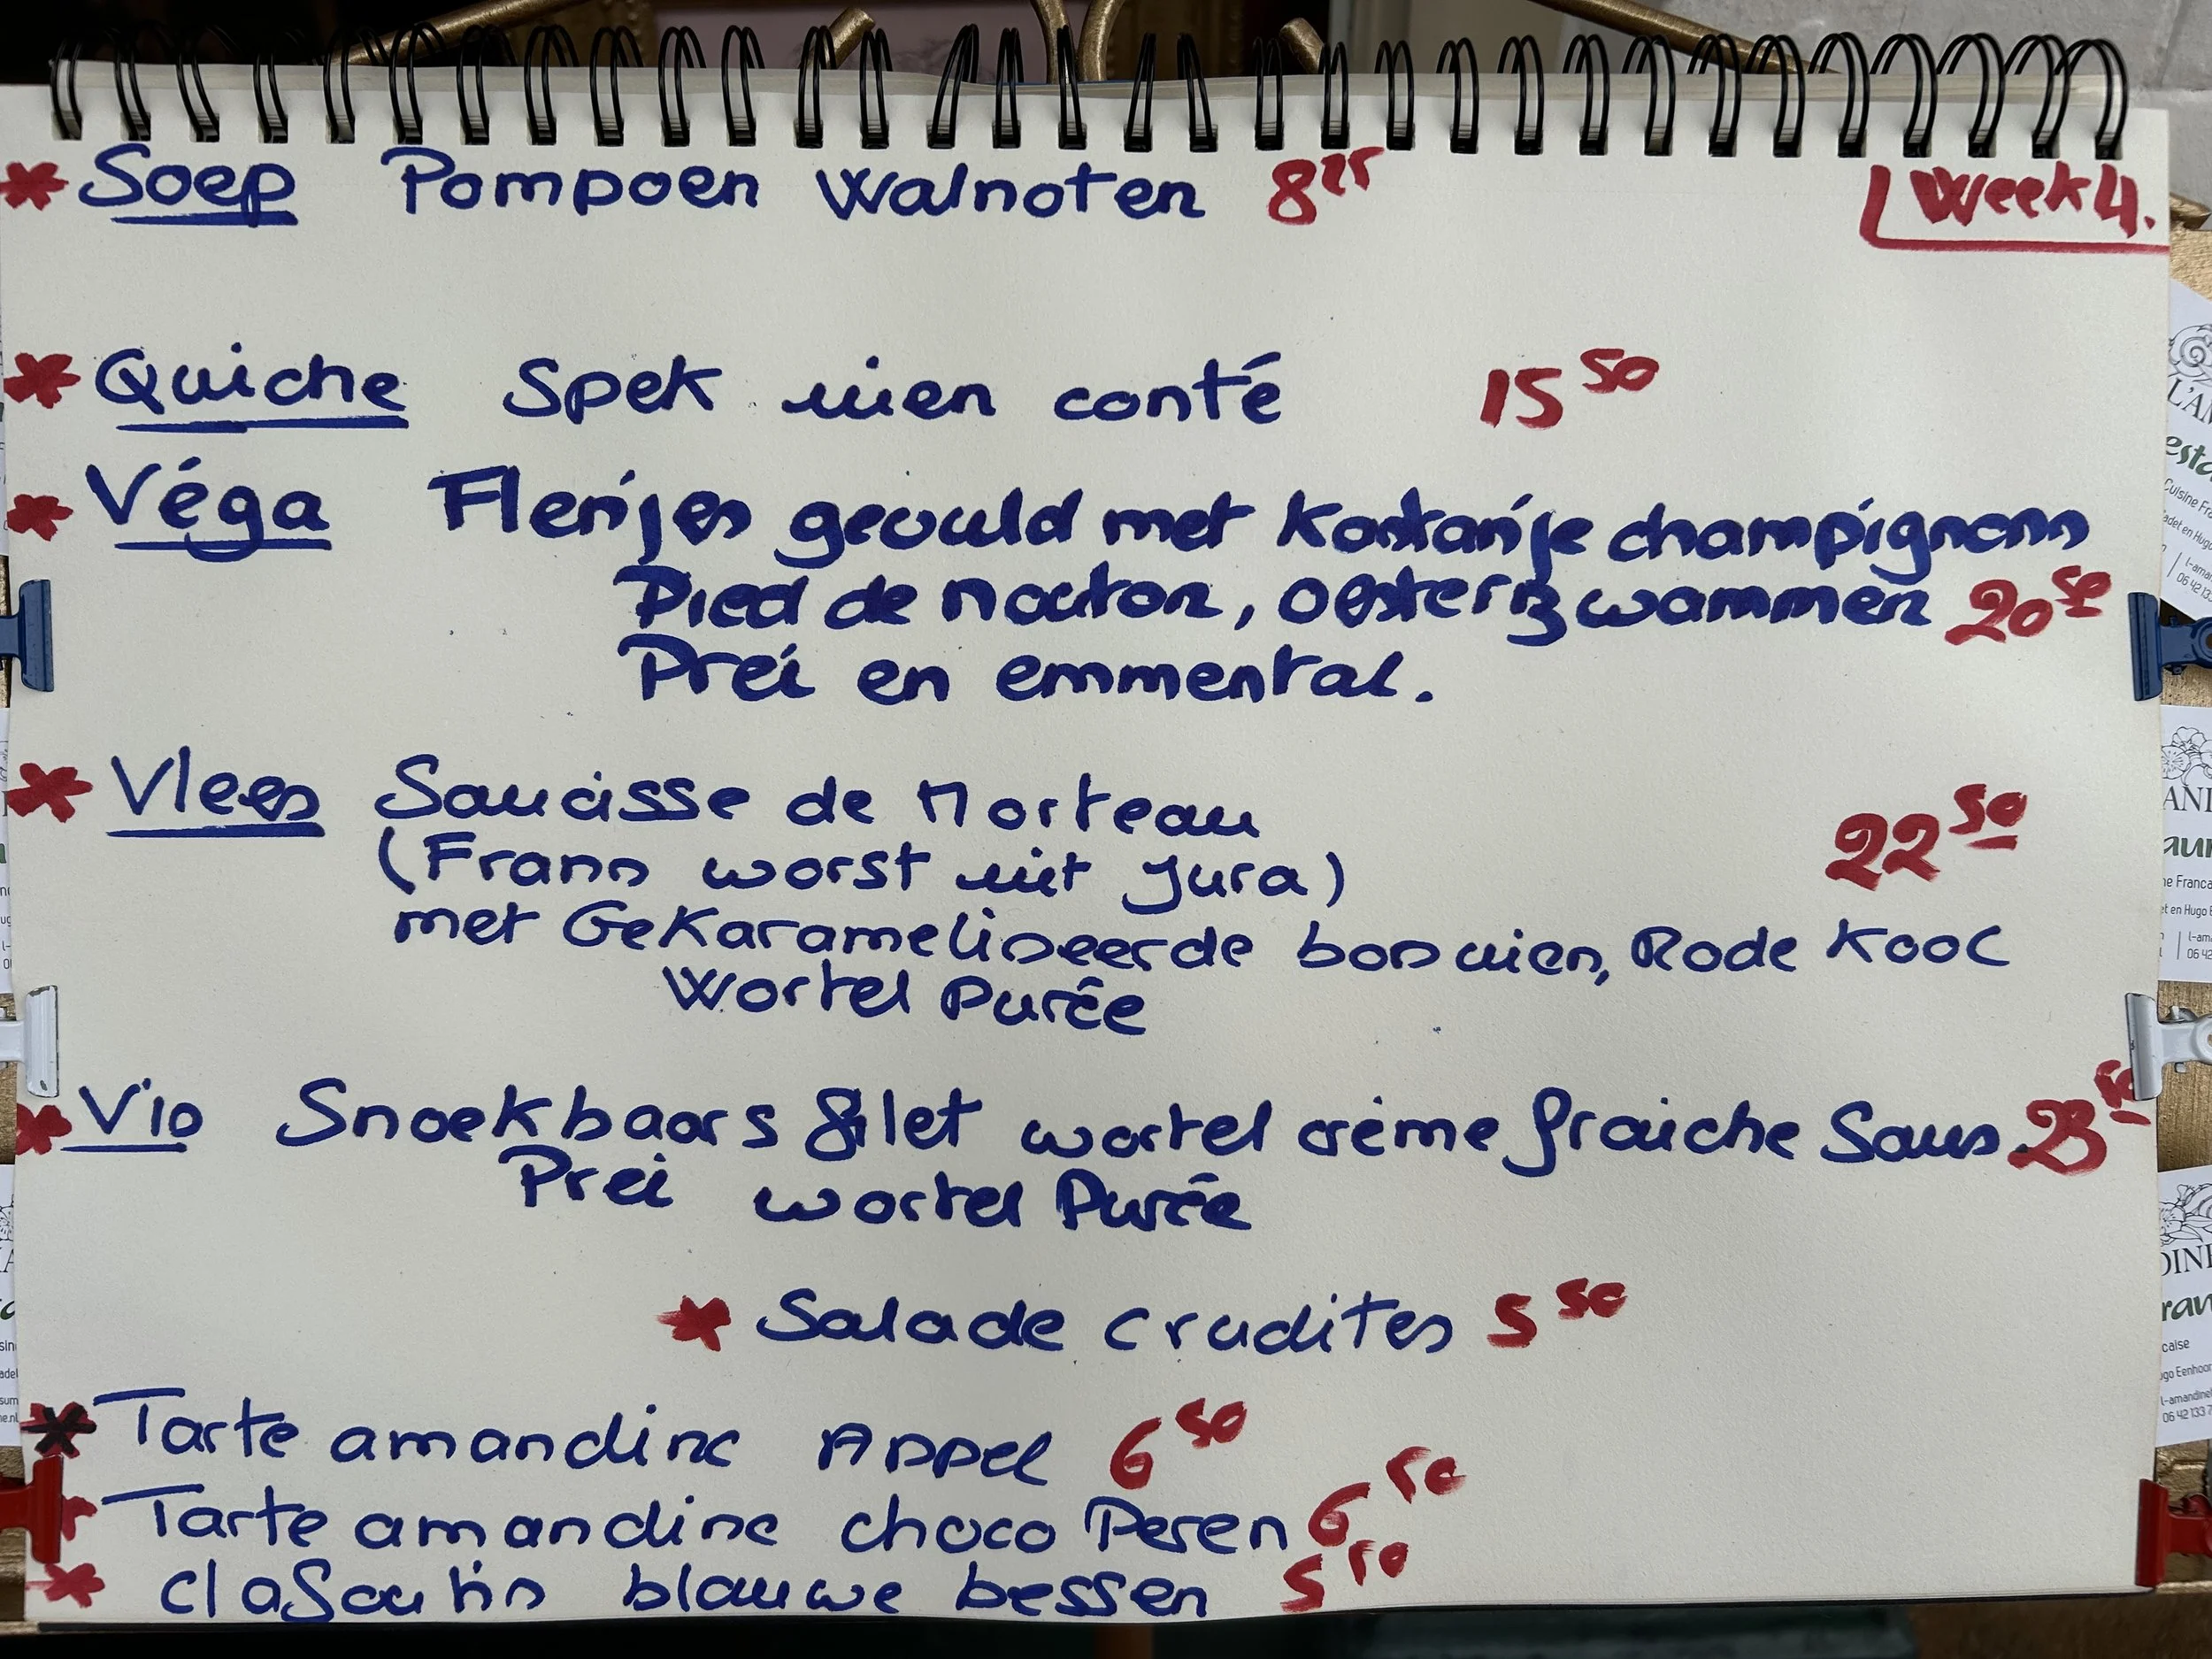 Soep Pompoen Walnoten 8²⁵
Week 4.
Quiche Spek uien conté 15⁵⁰
Véga Flensjes gevuld met Kastanje champignons
Pied de Mouton, Oesterzwammen 20⁵⁰
Prei en emmental.
Vlees Saucisse de Morteau
(Frans worst uit Jura) 22⁵⁰
met Gekarameliseerde bosuien, Rode Kool
Wortel Purée
Vis Snoekbaars filet wortel crème fraiche Saus 23⁵⁰
Prei wortel Purée
Salade crudites 5⁵⁰
Tarte amandine Appel 6⁵⁰
Tarte amandine choco Peren 6⁵⁰
clafoutis blauwe bessen 5⁵⁰